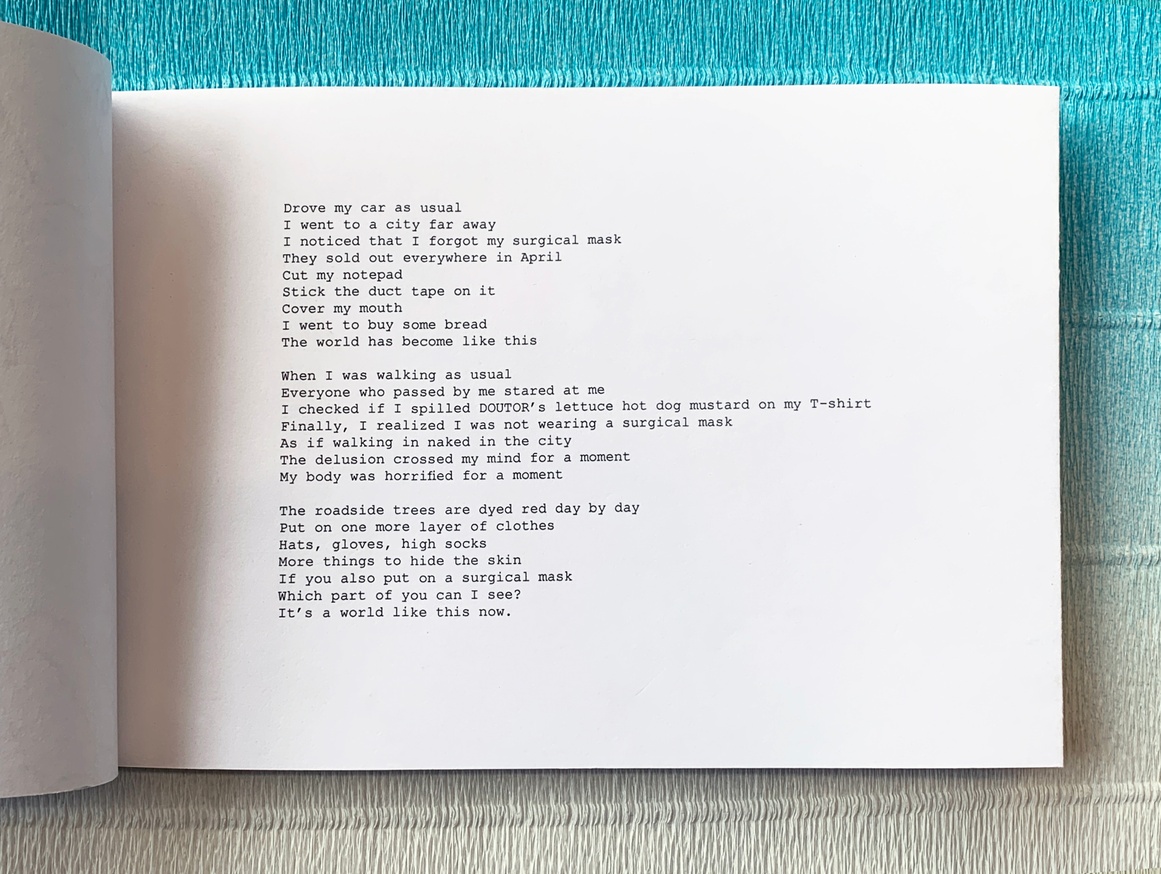 Drove my car as usual
I went to a city far away
I noticed that I forgot my surgical mask
They sold out everywhere in April
Cut my notepad
Stick the duct tape on it
Cover my mouth
I went to buy some bread
The world has become like this
When I was walking as usual
Everyone who passed by me stared at me
I checked if I spilled DOUTOR’s lettuce hot dog mustard on my T-shirt
Finally, I realized I was not wearing a surgical mask
As if walking in naked in the city
The delusion crossed my mind for a moment
My body was horrified for a moment
The roadside trees are dyed red day by day
Put on one more layer of clothes
Hats, gloves, high socks
More things to hide the skin
If you also put on a surgical mask
Which part of you can I see?
It’s a world like this now.